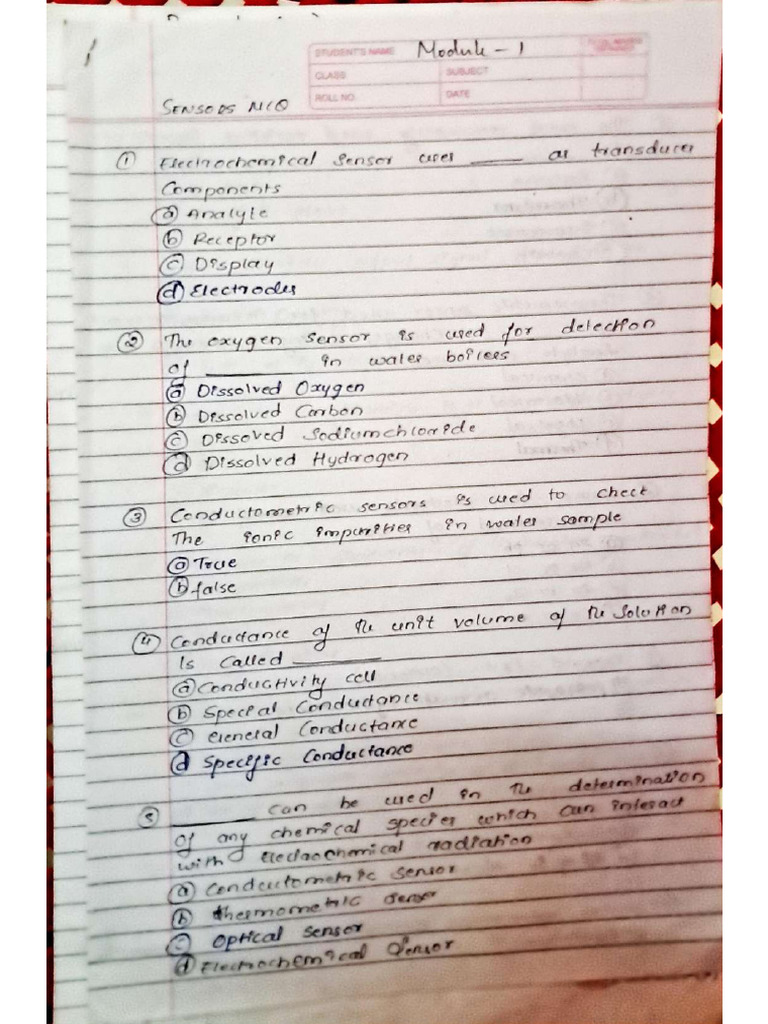 STUDENT'S NAME Module - 1
CLASS SUBJECT
ROLL NO. DATE
SENSORS MCQ
① Electrochemical Sensor uses ____ as transducer
Components
ⓐ Analyte
ⓑ Receptor
ⓒ Display
ⓓ Electrodes
② The oxygen sensor is used for detection
of ________ in water boilers
ⓐ Dissolved Oxygen
ⓑ Dissolved Carbon
ⓒ Dissoved Sodiumchloride
ⓓ Dissolved Hydrogen
③ Conductometric sensors is used to check
The ionic impurities in water sample
ⓐ True
ⓑ false
④ Conductance of the unit volume of the Solution
Is Called ________
ⓐ Conductivity cell
ⓑ Special Conductance
ⓒ General Conductance
ⓓ Specific Conductance
⑤ ________ can be used in the determination
of any chemical species which can interact
with Electrochemical radiation
ⓐ Conductometric Sensor
ⓑ thermometric Sensor
ⓒ Optical Sensor
ⓓ Electrochemical Sensor